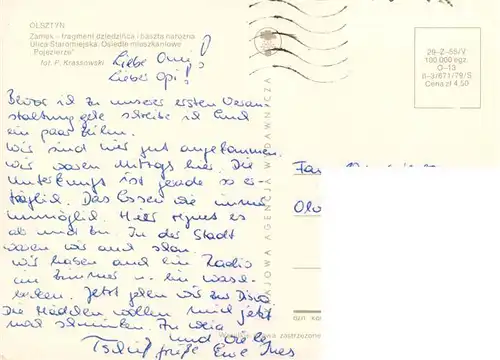 OLSZTYN
Zamek – fragment dziedzińca i baszta narożna
Ulica Staromiejska. Osiedle mieszkaniowe
"Pojezierze"
fot. F. Krassowski
Liebe Omi!
Lieber Opi!
Bevor ich zu unserer ersten Veran-
staltung gehe schreibe ich Euch
ein paar Zeilen.
Wir sind hier gut angekommen.
Wir waren Mittags hier. Die
Unterkunft ist gerade so er-
träglich. Das Essen wie immer
unmöglich. Hier regnet es
ab und zu. In der Stadt
waren wir auch schon.
Wir haben auch ein Radio
im Zimmer u. ein Wasch-
becken. Jetzt gehen wir zur Disco.
Die Mädchen wollen sich jetzt
noch schminken.
und viele
Tschüß Grüße Eure Ines
KRAJOWA AGENCJA WYDAWNICZA
26-Z-55/V
100.000 egz.
O-13
P-3/671/79/S
Cena zł 4,50
zastrzeżone